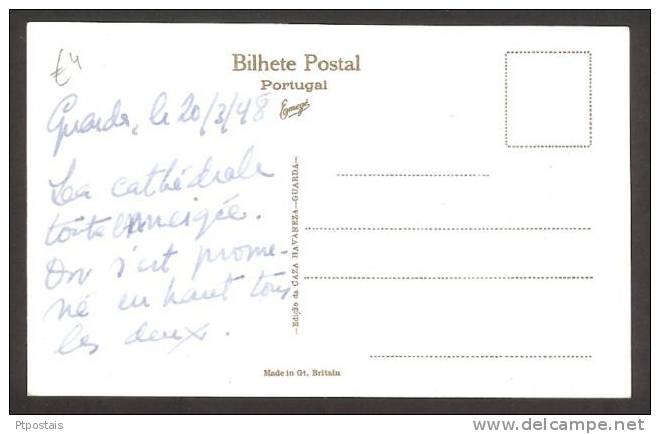 £4
Bilhete Postal
Portugal
Guarda, le 20/3/48
La cathédrale
toute enneigée.
On s'est prome-
né en haut tous
les deux.
—Edição da CAZA HAVANEZA—GUARDA—
Made in Gt. Britain
Ptpostais
www.delcampe.net